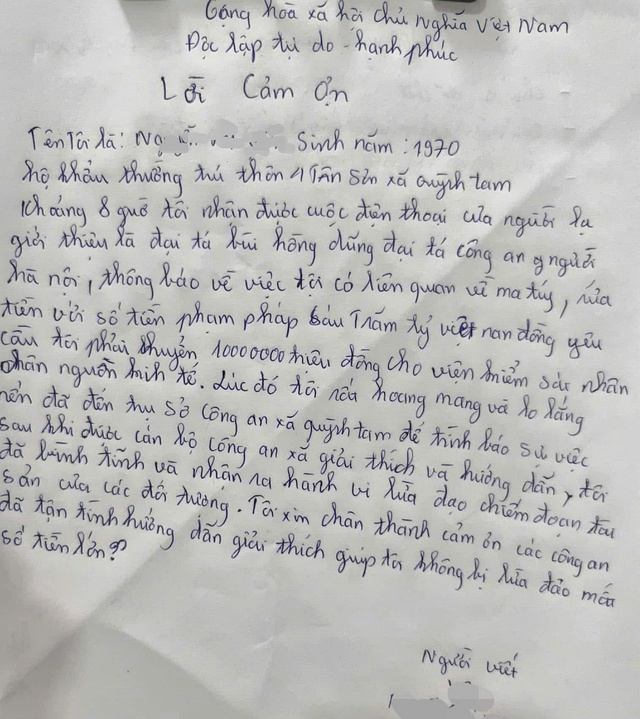 Cộng hòa xã hội chủ nghĩa Việt Nam
Độc lập tự do - hạnh phúc
Lời Cảm ơn
Tên Tôi là: Ng Sinh năm : 1970
hộ khẩu thường trú thôn 1 Tân Sơn xã quỳnh tam
Khoảng 8 giờ tôi nhận được cuộc điện thoại của người lạ
giới thiệu là đại tá bùi hồng dũng đại tá công an người
hà nội, thông báo về việc tôi có liên quan về ma túy, rửa
tiền với số tiền phạm pháp sáu Trăm tỷ việt nan đồng yêu
cầu tôi phải chuyển 10000000 triệu đồng cho viện kiểm sát nhân
chân nguồn kinh tế. Lúc đó tôi rất hoang mang và lo lắng
nên đã đến trụ sở công an xã quỳnh tam để trình báo sự việc
sau khi được cán bộ công an xã giải thích và hướng dẫn, tôi
đã bình tĩnh và nhận ra hành vi lừa đạo chiếm đoạn tài
sản của các đối tượng. Tôi xin chân thành cảm ơn các công an
đã tận tình hướng dẫn giải thích giúp tôi không bị lừa đảo mất
số tiền lớn.
Người viết